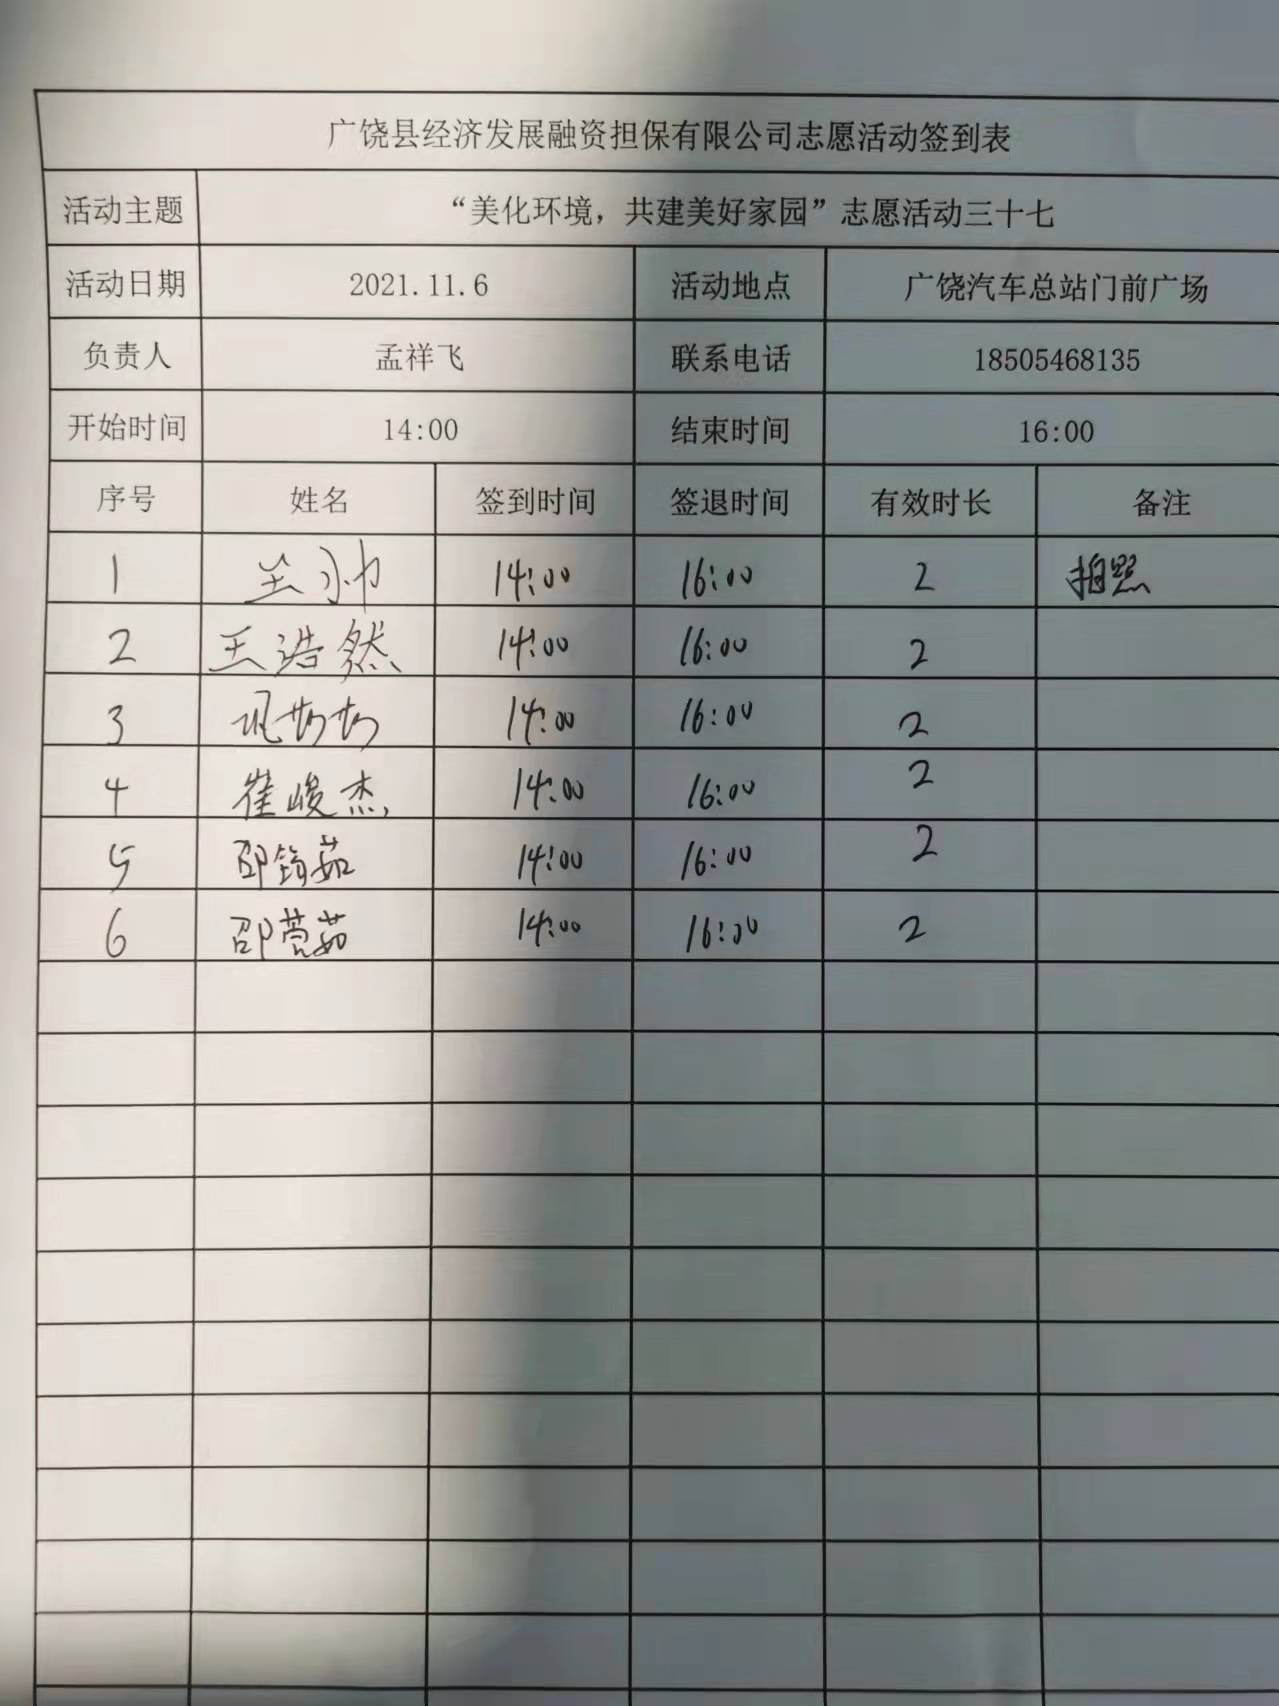 广饶县经济发展融资担保有限公司志愿活动签到表
活动主题 “美化环境，共建美好家园”志愿活动三十七
活动日期 2021.11.6 活动地点 广饶汽车总站门前广场
负责人 孟祥飞 联系电话 18505468135
开始时间 14:00 结束时间 16:00
序号 姓名 签到时间 签退时间 有效时长 备注
1 14:00 16:00 2 拍照
2 王浩然 14:00 16:00 2
3 14:00 16:00 2
4 崔峻杰 14:00 16:00 2
5 14:00 16:00 2
6 14:00 16:00 2